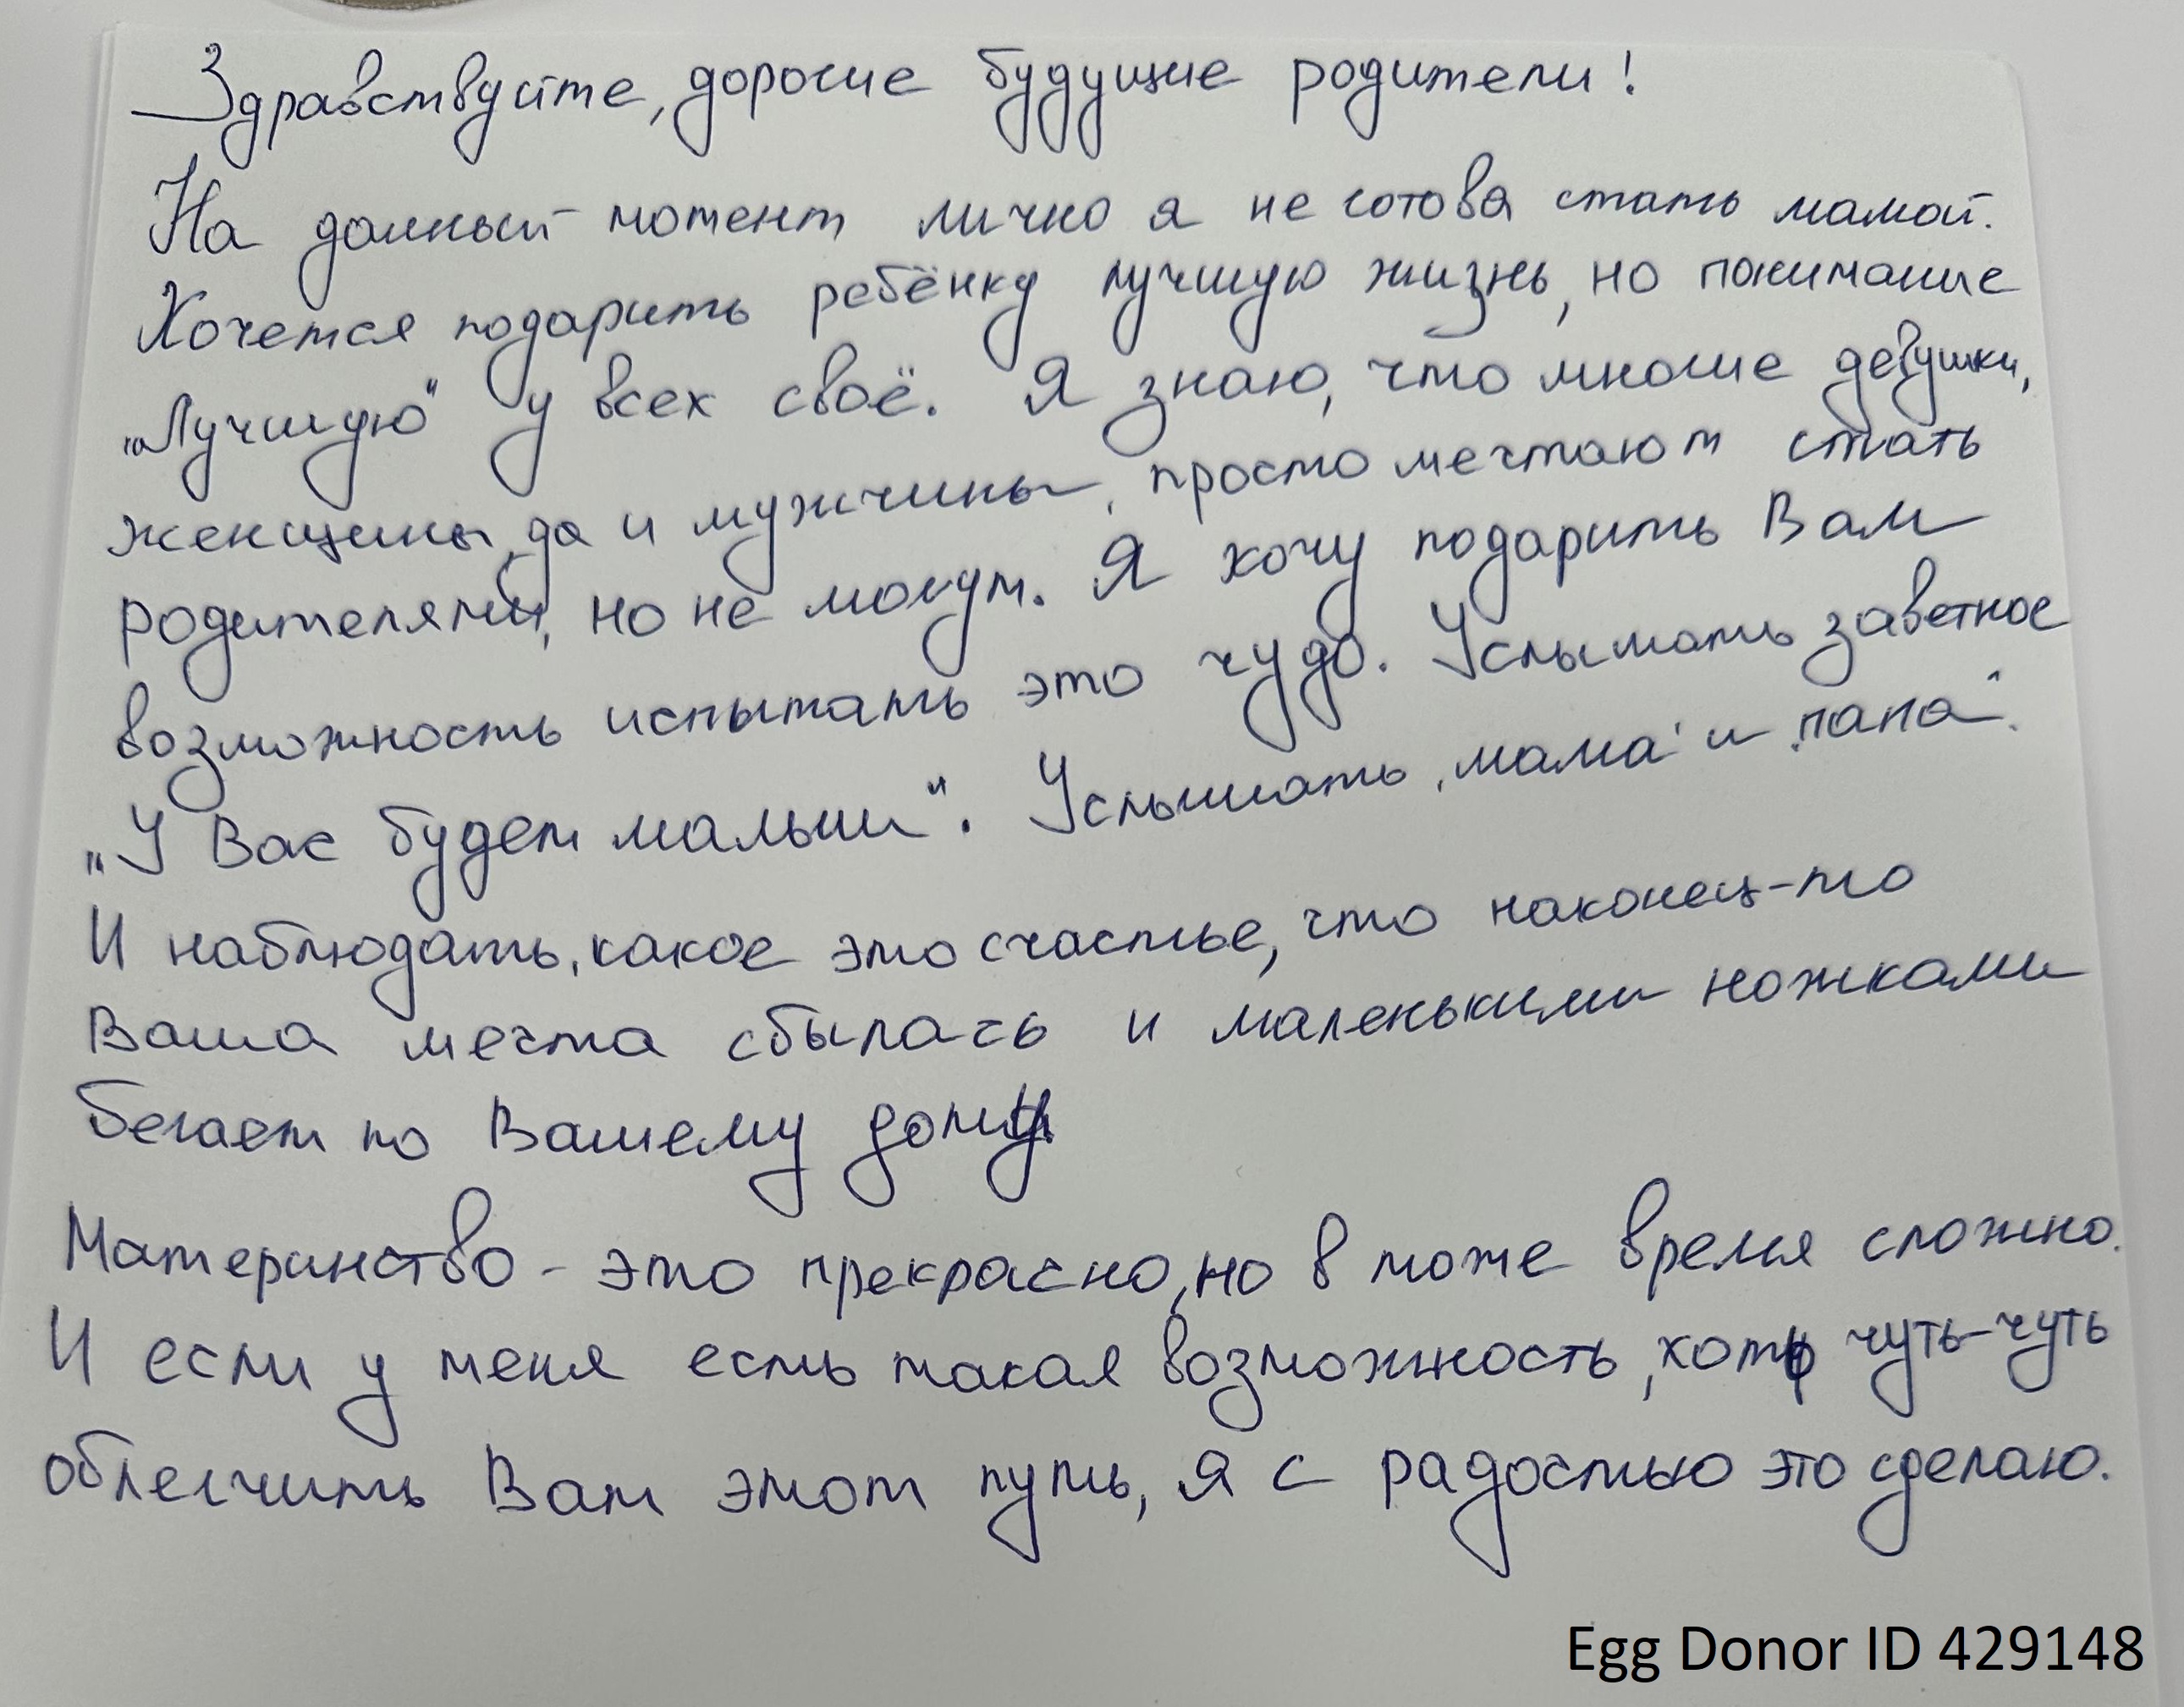 Здравствуйте, дорогие будущие родители!
На данный момент лично я не готова стать мамой.
Хочется подарить ребёнку лучшую жизнь, но понимание
„Лучшую" у всех своё. Я знаю, что многие девушки,
женщины, да и мужчины, просто мечтают стать
родителями, но не могут. Я хочу подарить Вам
возможность испытать это чудо. Услышать заветное
„У Вас будет малыш". Услышать „мама" и „папа".
И наблюдать, какое это счастье, что наконец-то
Ваша мечта сбылась и маленькими ножками
бегает по Вашему дому.
Материнство - это прекрасно, но в тоже время сложно.
И если у меня есть такая возможность, хоть чуть-чуть
облегчить Вам этот путь, я с радостью это сделаю.
Egg Donor ID 429148